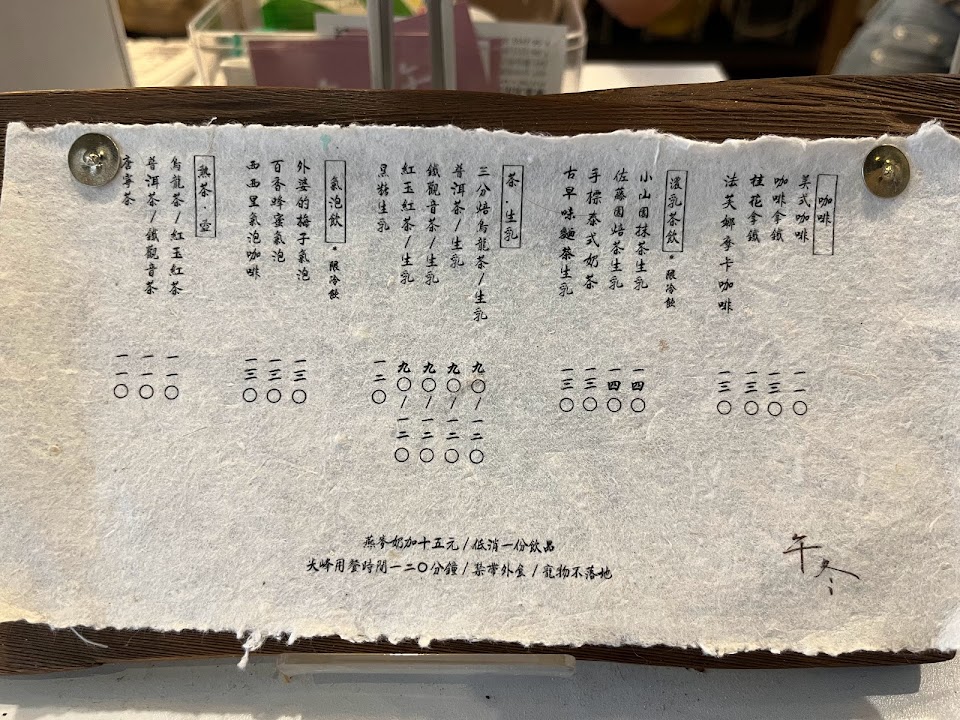 咖啡
美式咖啡 一一〇
咖啡拿鐵 一三〇
桂花拿鐵 一三〇
法芙娜摩卡咖啡 一三〇
濃乳茶飲 • 限冷飲
小山園抹茶生乳 一四〇
佐藤園焙茶生乳 一四〇
手標泰式奶茶 一三〇
古早味麵茶生乳 一三〇
茶．生乳
三分焙烏龍茶/生乳 九〇/一二〇
普洱茶/生乳 九〇/一二〇
鐵觀音茶/生乳 九〇/一二〇
紅玉紅茶/生乳 九〇/一二〇
黑糖生乳 一二〇
氣泡飲 • 限冷飲
外婆的梅子氣泡 一三〇
百香蜂蜜氣泡 一三〇
西西里氣泡咖啡 一三〇
熱茶．壺
烏龍茶/紅玉紅茶 一一〇
普洱茶/鐵觀音茶 一一〇
唐寧茶 一一〇
燕麥奶加十五元/低消一份飲品
尖峰用餐時間一二〇分鐘/禁帶外食/寵物不落地
午冬